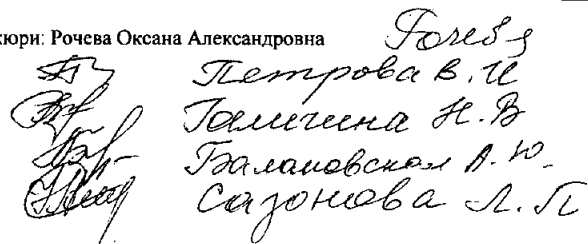 жюри: Рочева Оксана Александровна
Петрова В. И
Галичина Н. В
Балановская А. Ю.
Сазонова Л. П